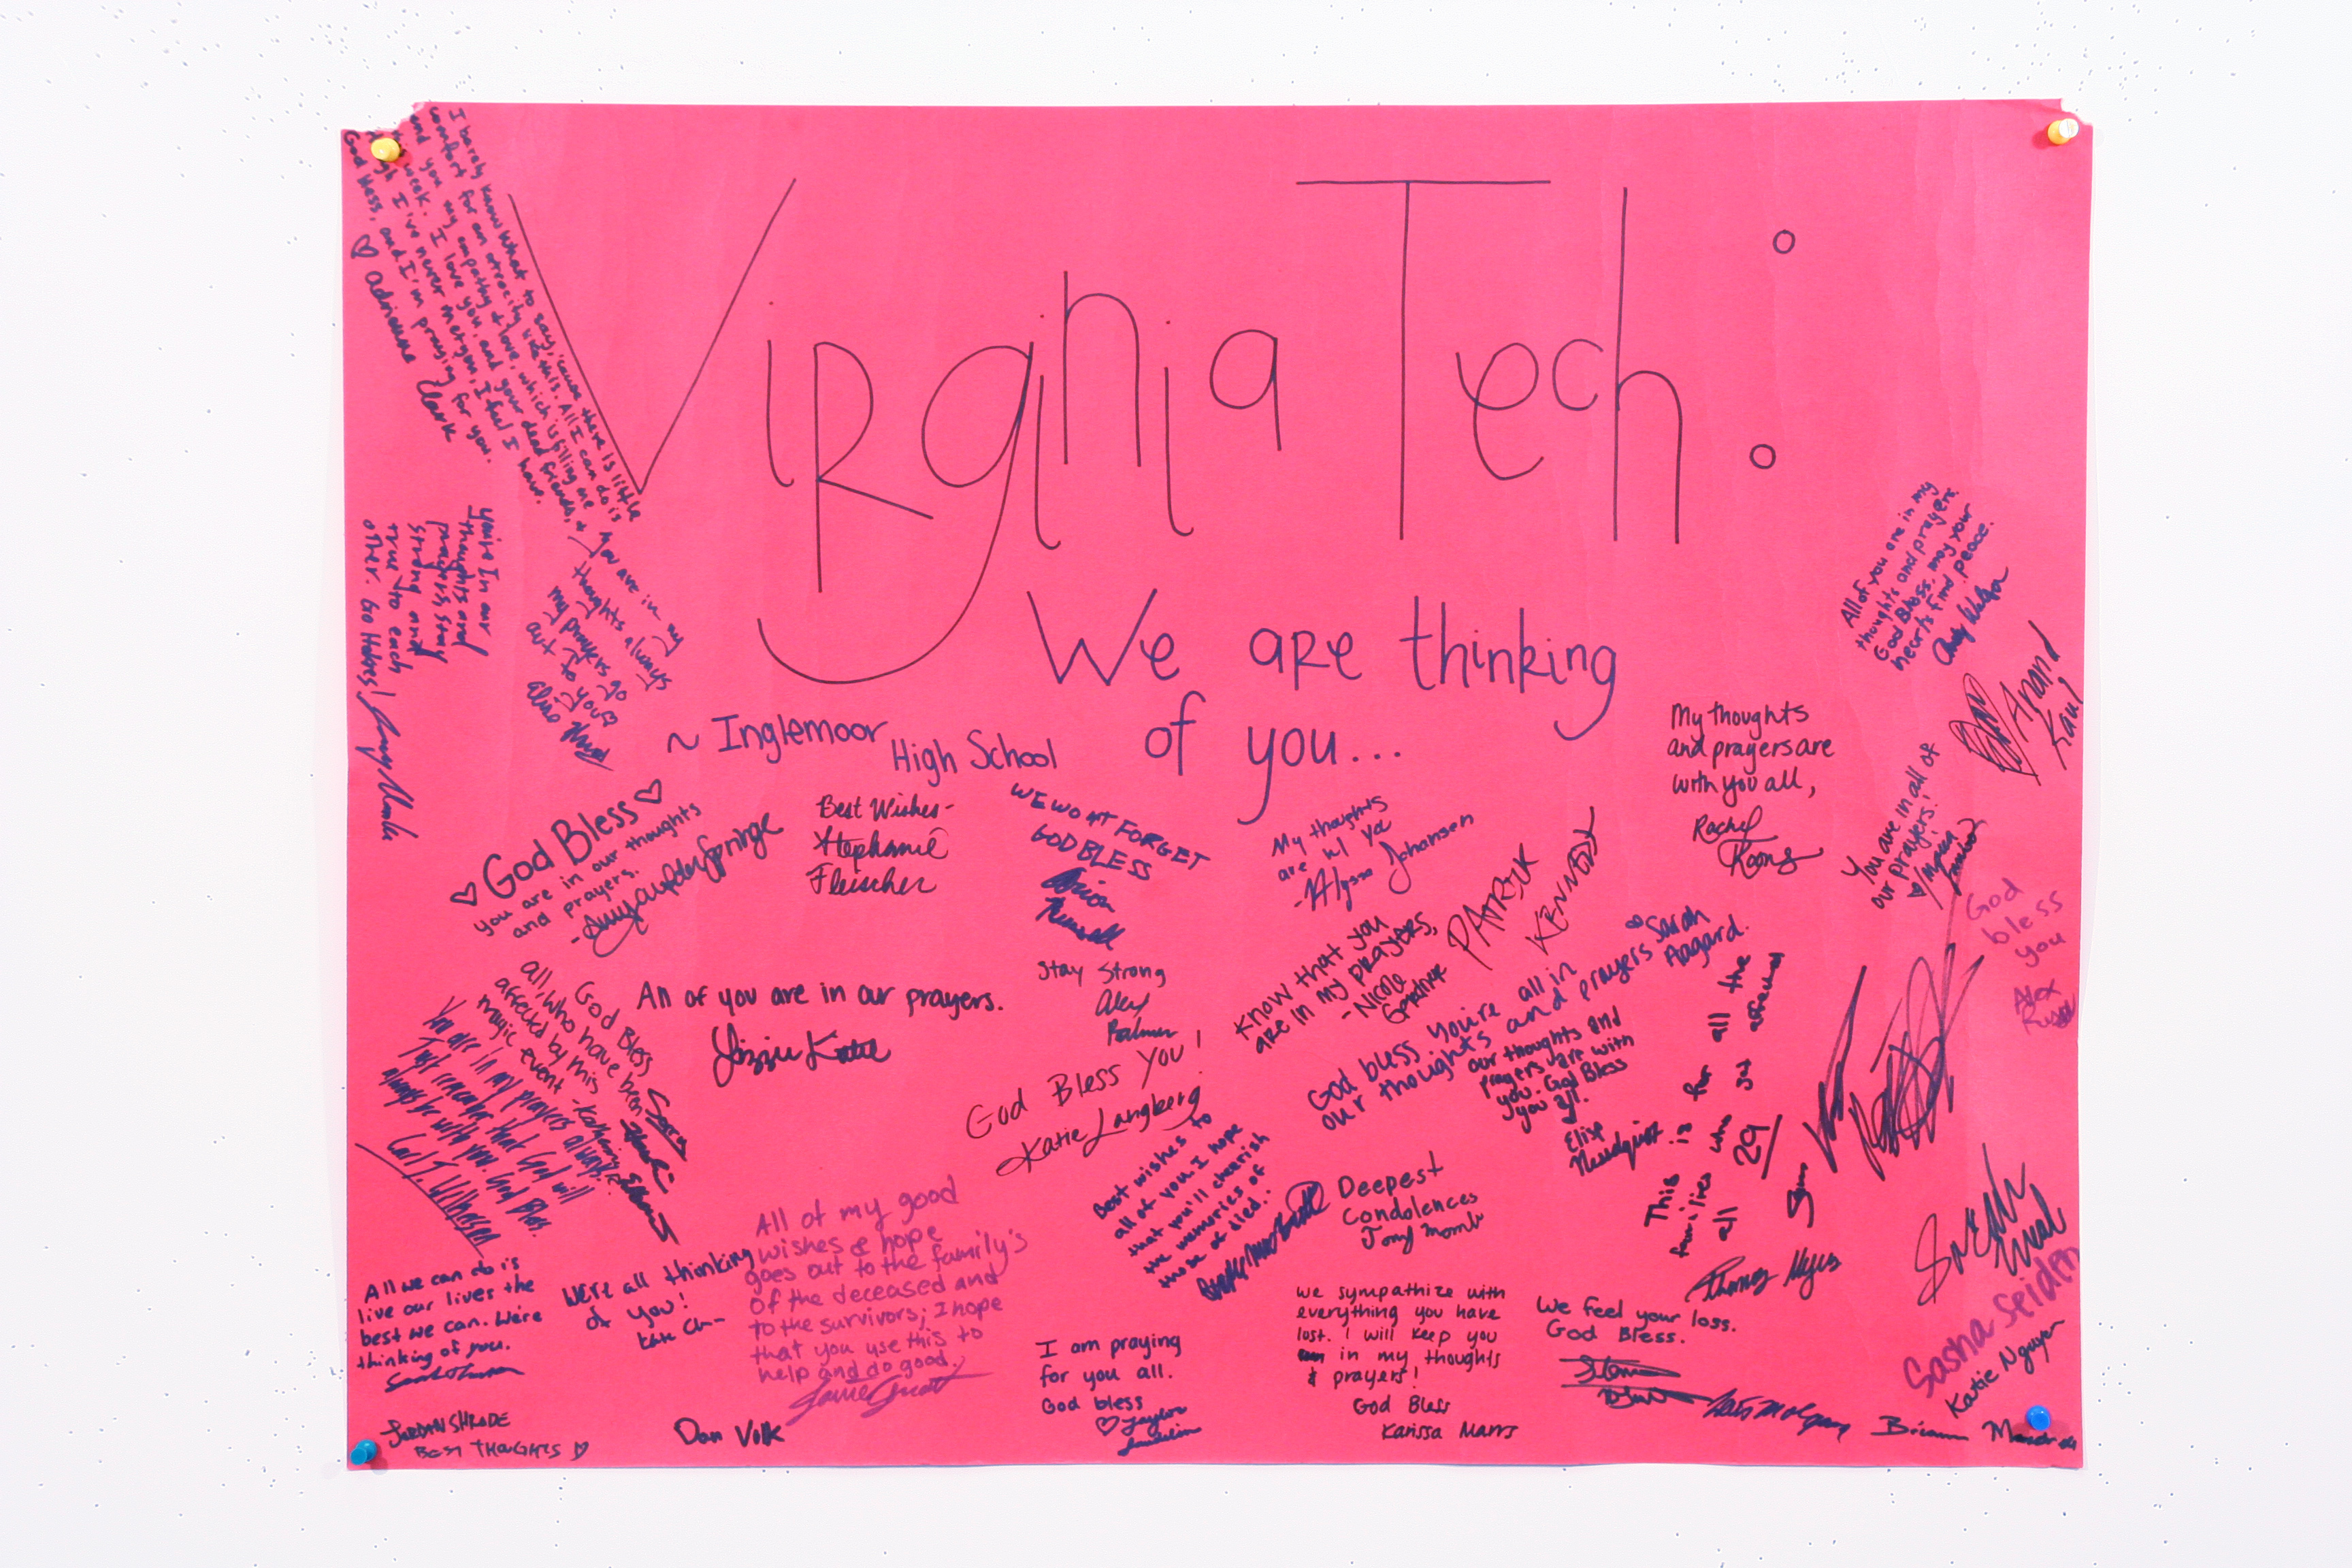 Virginia Tech:
We are thinking
of you...
~ Inglemoor
High School
I barely know what to say, 'cause there is little
comfort for an atrocity like this. All I can do is
send you my empathy & love, which is filling me
week. I love you, and your dead friends, &
though I've never met you, I feel I have.
God bless, and I'm praying for you.
♡ Adrienne Clark
You're In our
thoughts and
prayers, stay
strong and
true to each
other. Go Hokies!
You are in my
thoughts always
my prayers go
out to you
All of you are in my
thoughts and prayers.
God Bless, may your
hearts find peace.
Anand
Kaul
My thoughts
and prayers are
with you all,
Rachel
Koons
You are in all of
our prayers!
♡ God Bless ♡
you are in our thoughts
and prayers.
Best Wishes-
Stephanie
Fleischer
WE WONT FORGET
GOD BLESS
My thoughts
are w/ ya
-Alyssa Johansen
PATRICK
KENNEDY
God
bless
you
Alex
Know that you
are in my prayers,
-Nicole
Gardner
God bless you're all in
our thoughts and prayers
Sarah
Aagard.
All of you are in our prayers.
Lizzie
Stay Strong
Alex
Palmer
God Bless
all, who have been
affected by this
tragic event
You are in my prayers always.
Just remember that God will
always be with you. God Bless.
God Bless You!
Katie Langberg
our thoughts and
prayers are with
you. God Bless
you all.
Elise
This is for all the
families who got affected
all 29
Best wishes to
all of you. I hope
that you'll cherish
the memories of
those of died.
Deepest
Condolences
All of my good
wishes & hope
goes out to the family's
of the deceased and
to the survivors; I hope
that you use this to
help and do good.
All we can do is
live our lives the
best we can. We're
thinking of you.
We're all thinking
of you!
Thomas Myers
Sasha Seiden
Katie Nguyen
I am praying
for you all.
God bless
♡ Taylor
we sympathize with
everything you have
lost. I will keep you
in my thoughts
& prayers!
God Bless
Karissa Marrs
We feel your loss.
God Bless.
JORDAN SHRADE
BEST THOUGHTS ♡
Dan Volk
Brianna